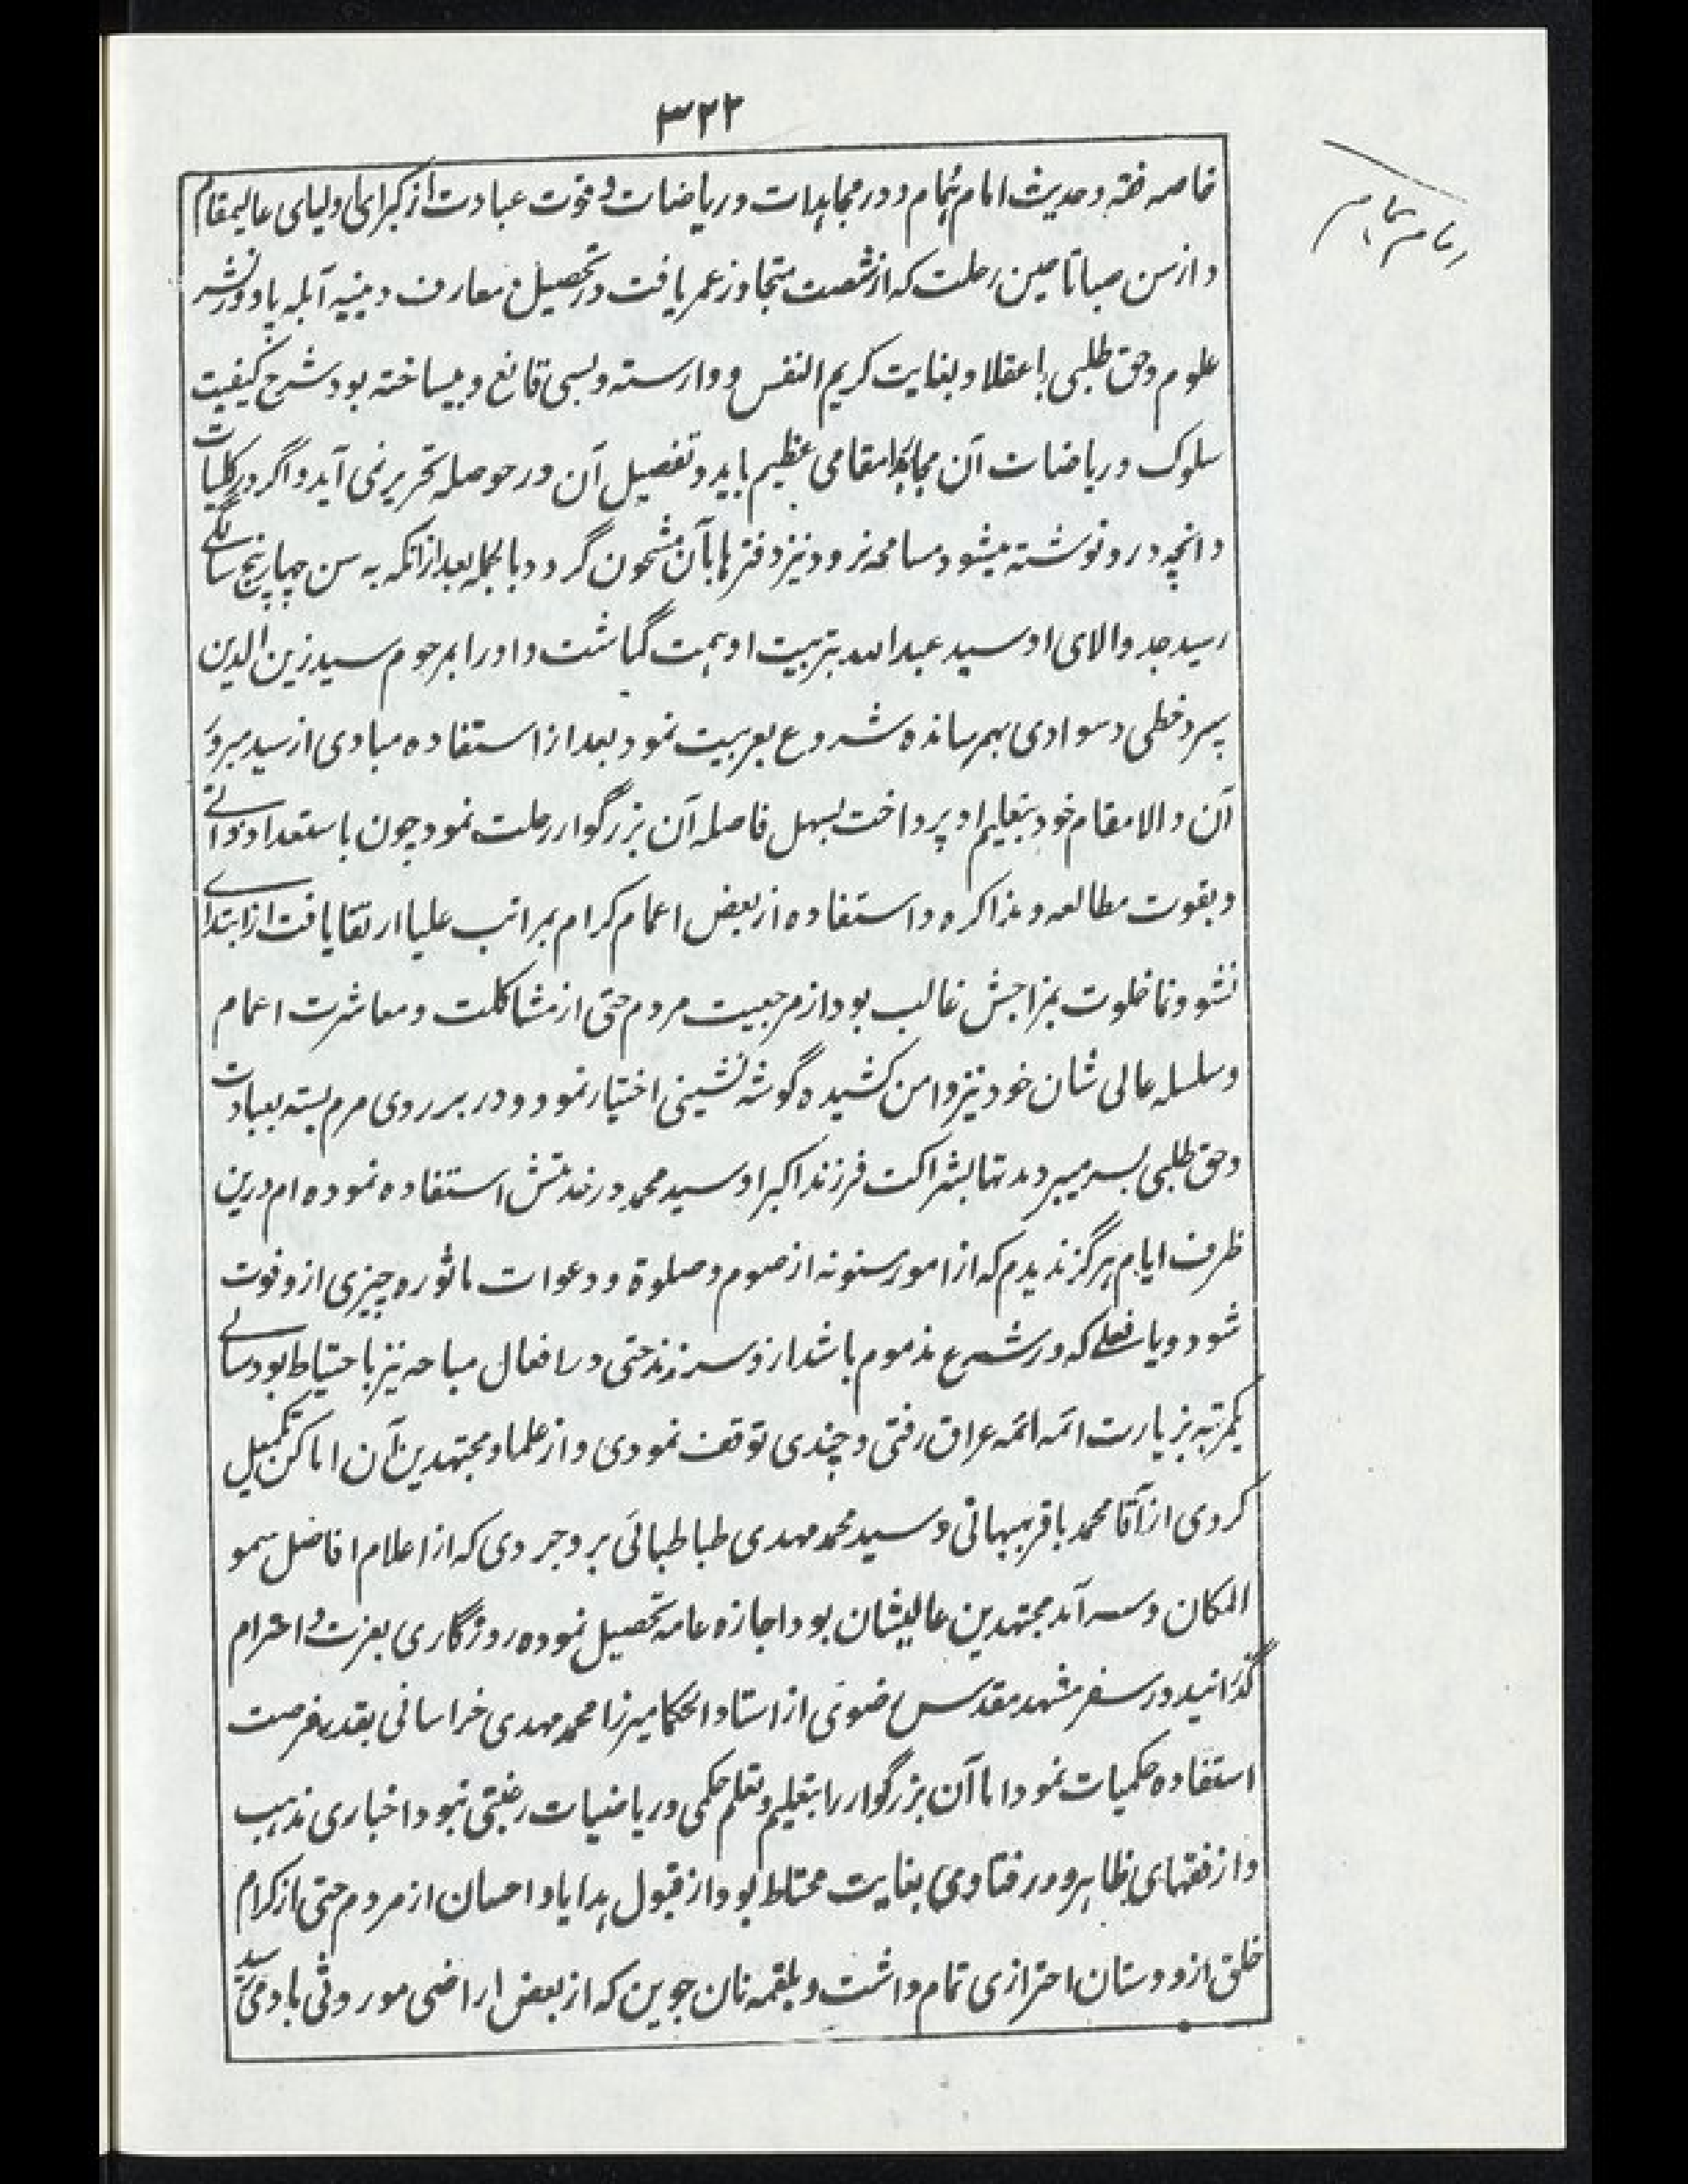 ۳۲۲
خاصه فقه و حدیث امام همام و در مجاهدات و ریاضات و قوت عبادت از کبرای اولیای عالیمقام
و از سن صبا تا حین رحلت که از شصت متجاوز عمر یافت در تحصیل معارف دینیه آبله پا و در نشر
علوم و حق طلبی با عقلا و بغایت کریم النفس و وارسته و بسی قانع و بیساخته بود شرح کیفیت
سلوک و ریاضات آن مجاهد را مقامی عظیم باید و تفصیل آن در حوصله تحریر نمی آید و اگر در کلیات
و انچه درو نوشته میشود مسامحه نرود نیز دفترها بآن مشحون گردد بالجمله بعد از انکه به سن چهار پنج سالگی
رسید جد والای او سید عبدالله بتربیت او همت گماشت و او را بمرحوم سید زین الدین
سپرد خطی و سوادی بهم رسانده شروع بعربیت نمود بعد از استفاده مبادی از سید مبرور
آن والامقام خود بتعلیم او پرداخت بسهل فاصله آن بزرگوار رحلت نمود چون با استعداد ذاتی
و بقوت مطالعه و مذاکره و استفاده از بعض اعمام کرام بمراتب علیا ارتقا یافت از ابتدای
نشو و نما خلوت بمزاجش غالب بود از مرجعیت مردم حتی از مشاکلت و معاشرت اعمام
و سلسله عالی شان خود نیز دامن کشیده گوشه نشینی اختیار نمود و در بر روی مرم بسته بعبادت
و حق طلبی بسر میبرد مدتها بشراکت فرزند اکبر او سید محمد در خدمتش استفاده نموده ام درین
ظرف ایام هرگز ندیدم که از امور مسنونه از صوم و صلوة و دعوات ماثوره چیزی ازو فوت
شود و یا فعلی که در شرع مذموم باشد ازو سر زند حتی در افعال مباحه نیز با احتیاط بود سالی
یکمرتبه بزیارت ائمه ائمه عراق رفتی و چندی توقف نمودی و از علما و مجتهدین آن اماکن تکمیل
کردی از آقا محمد باقر بهبهانی و سید محمد مهدی طباطبائی بروجردی که از اعلام افاضل سمو
المکان و سرآمد مجتهدین عالیشان بود اجازه عامه تحصیل نموده روزگاری بعزت و احترام
گذرانید در سفر مشهد مقدس رضوی از استاد الحکما میرزا محمد مهدی خراسانی بقدر فرصت
استفاده حکمیات نمود اما آن بزرگوار را بتعلیم و تعلم حکمی و ریاضیات رغبتی نبود اخباری مذهب
و از فقهای بظاهر و در فتاوی بغایت محتاط بود از قبول هدایا و احسان از مردم حتی از کرام
خلق از دوستان احترازی تمام داشت و بلقمه نان جوین که از بعض اراضی موروثی باو میرسید